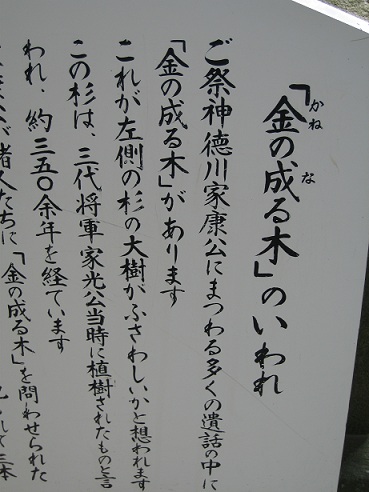 「金の成る木」のいわれ
かね な
ご祭神徳川家康公にまつわる多くの遺話の中に
「金の成る木」があります
これが左側の杉の大樹がふさわしいかと想われます
この杉は、三代将軍家光公当時に植樹されたものと言
われ、約三五〇余年を経ています
諸人たちに「金の成る木」を問わせられた